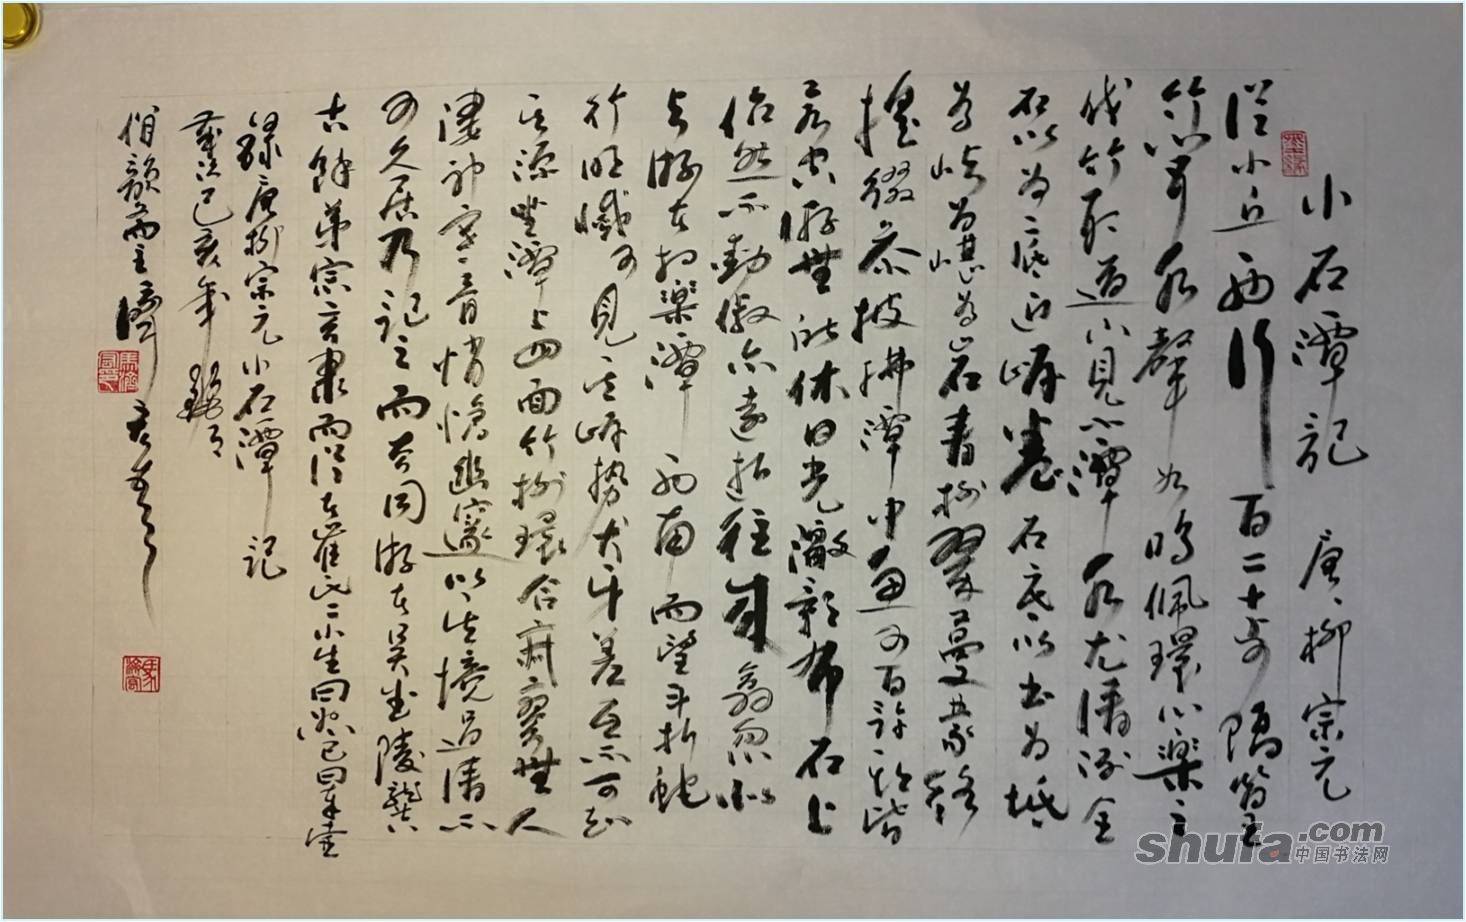 小石潭記 唐柳宗元
從小丘西行百二十步隔篁
竹聞水聲如鳴佩環心樂之
伐竹取道下見小潭水尤清冽全
石以為底近岸卷石底以出為坻
為嶼為嵁為岩青樹翠蔓蒙絡
搖綴參披拂潭中魚可百許頭皆
若空游無所依日光澈影布石上
佁然不動俶尔遠逝往來翕忽似
与游者相樂潭西南而望斗折蛇
行明滅可見其岸勢犬牙差互不可知
其源坐潭上四面竹樹環合寂寥無人
淒神寒骨悄愴幽邃以其境過清不
可久居乃記之而去同游者吳武陵龔
古余弟宗玄隸而從者崔氏二小生曰恕己曰奉壹
錄唐柳宗元小石潭記
歲次己亥年
shufa.com
中国书法网